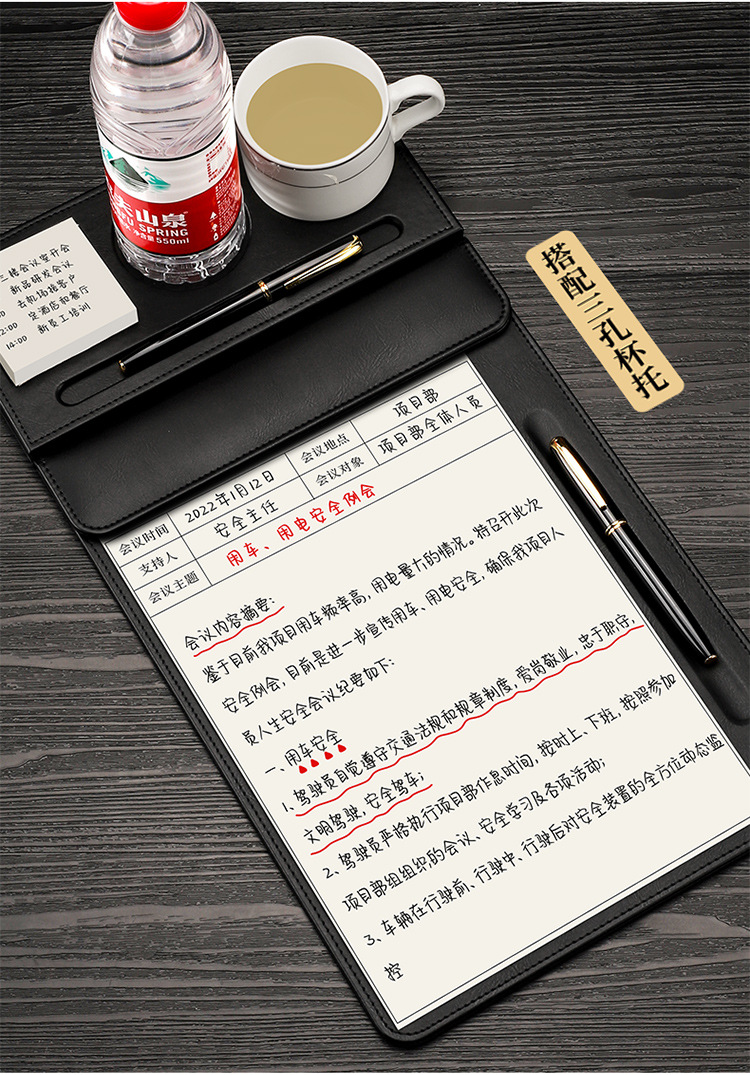 天山泉
FU SPRING
550ml
三楼会议室开会
新品研发会议
去机场接客户
2:00 定酒店和餐厅
14:00 新员工培训
搭配三孔杯托
会议时间 2022年1月12日 会议地点 项目部
支持人 安全主任 会议对象 项目部全体人员
会议主题 用车、用电安全例会
会议内容摘要:
鉴于目前我项目用车频率高,用电量大的情况。特召开此次
安全例会,目前是进一步宣传用车、用电安全,确保我项目人
员人生安全会议纪要如下:
一、用车安全
1、驾驶员自觉遵守交通法规和规章制度,爱岗敬业,忠于职守,
文明驾驶,安全驾车;
2、驾驶员严格执行项目部作息时间,按时上、下班,按照参加
项目部组组织的会议、安全学习及各项活动;
3、车辆在行驶前、行驶中、行驶后对安全装置的全方位动态监
控